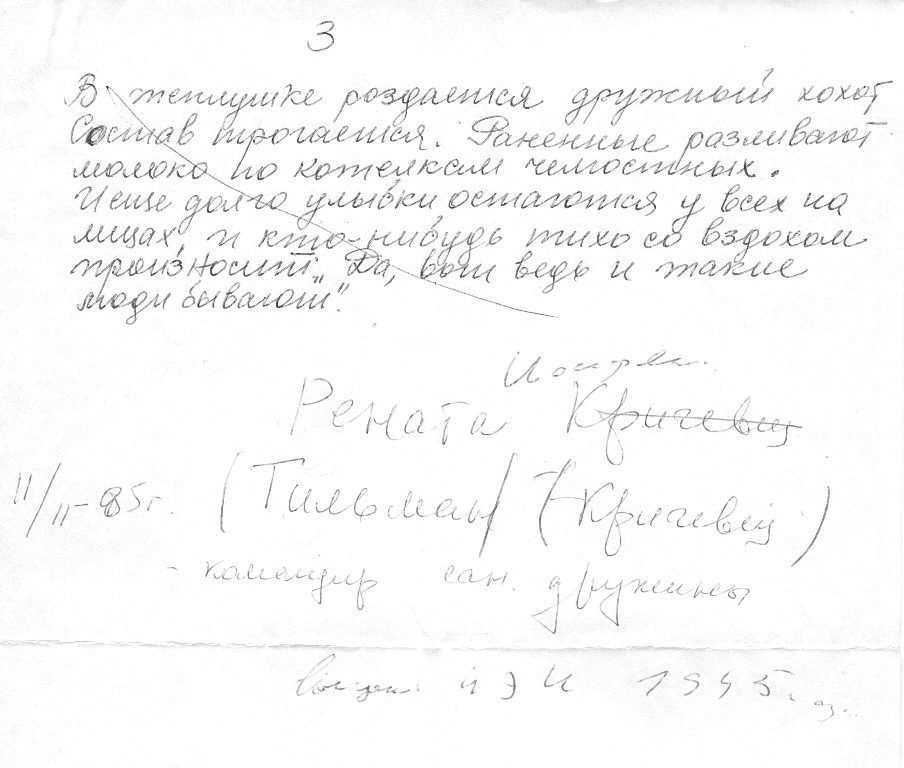 3
В теплушке роздается дружный хохот
Состав трогается. Раненные разливают
молоко по котелкам челюстных.
И еще долго улыбки остаются у всех на
лицах, и кто-нибудь тихо со вздохом
произносит „Да, вот ведь и такие
люди бывают".
Рената Кричевец
11/II-85г. (Тильман) (Кричевец)
- командир сан. дружины
1945г.